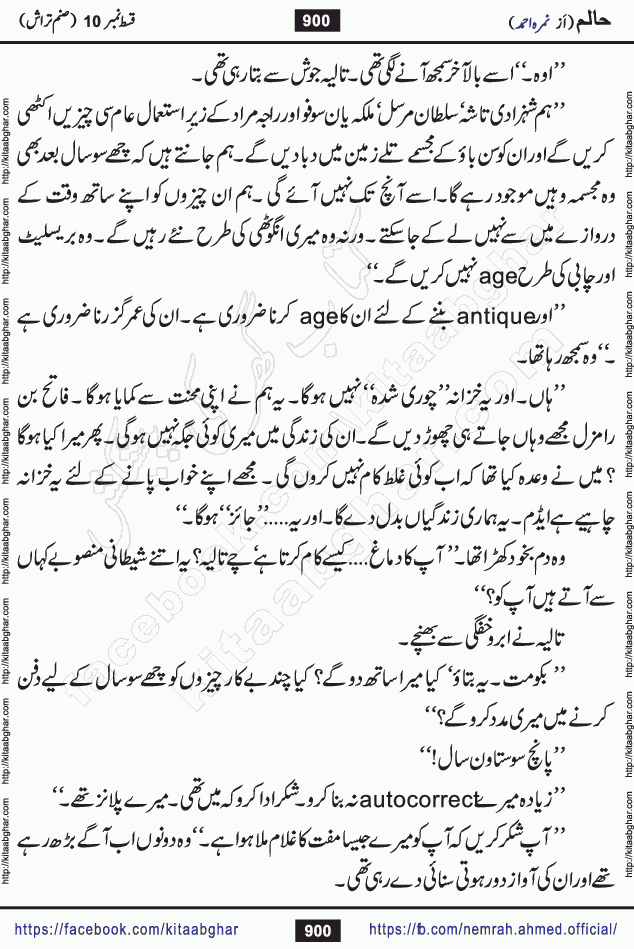 حالم (از نمرہ احمد) 900 قسط نمبر 10 (صنم تراش)
’’اوہ۔‘‘ اسے بالآخر سمجھ آنے لگی تھی۔ تالیہ جوش سے بتا رہی تھی۔
’’ہم شہزادی تاشہ‘ سلطان مرسل‘ ملکہ یان سوفو اور راجہ مراد کے زیرِ استعمال عام سی چیزیں اکٹھی
کریں گے اور ان کو سن باؤ کے مجسمے تلے زمین میں دبا دیں گے۔ ہم جانتے ہیں کہ چھے سو سال بعد بھی
وہ مجسمہ وہیں موجود رہے گا۔ اسے آنچ تک نہیں آئے گی ۔ہم ان چیزوں کو اپنے ساتھ وقت کے
دروازے میں سے نہیں لے کے جا سکتے۔ ورنہ وہ میری انگوٹھی کی طرح نئے رہیں گے۔ وہ بریسلیٹ
اور چابی کی طرح age نہیں کریں گے۔‘‘
’’اور antique بننے کے لئے ان کا age کرنا ضروری ہے۔ ان کی عمر گزرنا ضروری ہے
۔‘‘وہ سمجھ رہا تھا۔
’’ہاں۔ اور یہ خزانہ ’’چوری شدہ‘‘ نہیں ہو گا۔ یہ ہم نے اپنی محنت سے کمایا ہو گا ۔ فاتح بن
رامزل مجھے وہاں جاتے ہی چھوڑ دیں گے۔ ان کی زندگی میں میری کوئی جگہ نہیں ہو گی۔ پھر میرا کیا ہو گا
؟ میں نے وعدہ کیا تھا کہ اب کوئی غلط کام نہیں کروں گی ۔ مجھے اپنے خواب پانے کے لئے یہ خزانہ
چاہیے ہے ایڈم۔ یہ ہماری زندگیاں بدل دے گا۔ اور یہ.....’’جائز‘‘ ہو گا۔‘‘
وہ دم بخود کھڑا تھا۔ ’’آپ کا دماغ....کیسے کام کرتا ہے‘ چے تالیہ؟ یہ اتنے شیطانی منصوبے کہاں
سے آتے ہیں آپ کو؟‘‘
تالیہ نے ابرو خفگی سے بھنچے۔
’’بکومت۔ یہ بتاؤ‘ کیا میرا ساتھ دو گے؟ کیا چند بے کار چیزوں کو چھے سو سال کے لیے دفن
کرنے میں میری مدد کرو گے؟‘‘
’’پانچ سو ستاون سال!‘‘
’’زیادہ میرے autocorrect نہ بنا کرو۔ شکر ادا کرو کہ میں تھی۔ میرے پلانز تھے۔‘‘
’’آپ شکر کریں کہ آپ کو میرے جیسا مفت کا غلام ملا ہوا ہے۔‘‘ وہ دونوں اب آگے بڑھ رہے
تھے اور ان کی آواز دور ہوتی سنائی دے رہی تھی۔
https://facebook.com/kitaabghar 900 https://fb.com/nemrah.ahmed.official/
http://kitaabghar.com http://kitaabghar.com http://kitaabghar.com http://kitaabghar.com http://kitaabghar.com http://kitaabghar.com http://kitaabghar.com http://kitaabghar.com
http://kitaabghar.com http://kitaabghar.com http://kitaabghar.com http://kitaabghar.com http://kitaabghar.com http://kitaabghar.com http://kitaabghar.com http://kitaabghar.com
کتاب گھر کی پیشکش
facebook.com/kitaabghar
kitaabghar.com